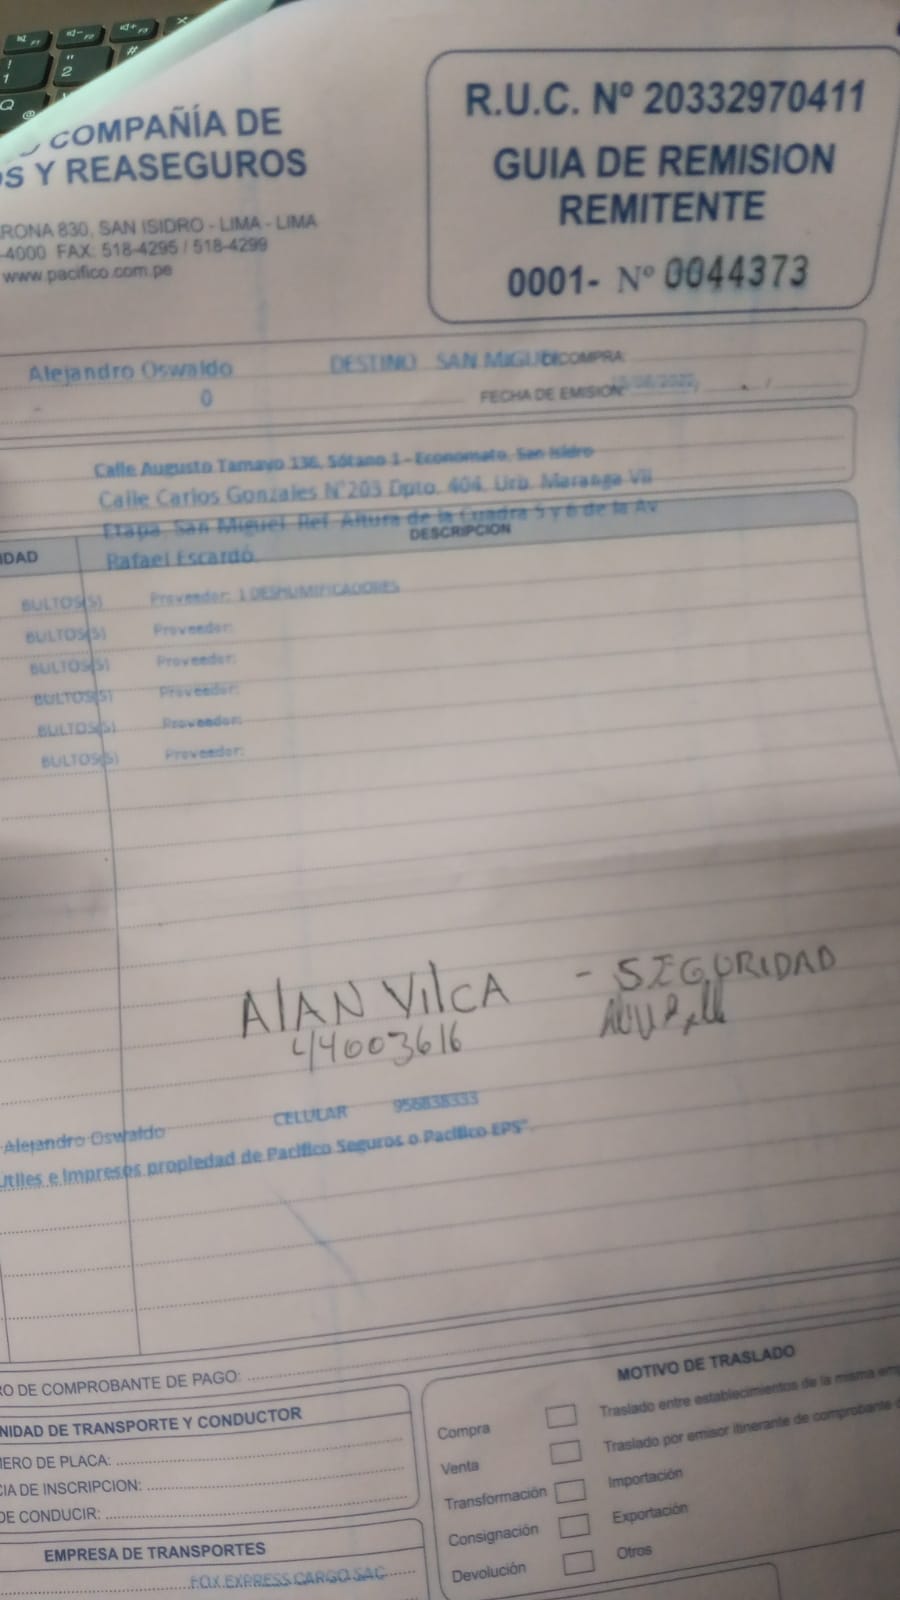 COMPAÑÍA DE
OS Y REASEGUROS
RONA 830, SAN ISIDRO - LIMA - LIMA
-4000 FAX: 518-4295 / 518-4299
www.pacifico.com.pe
R.U.C. Nº 20332970411
GUIA DE REMISION
REMITENTE
0001- Nº 0044373
Alejandro Oswaldo DESTINO SAN MIGUEL COMPRA:
0 FECHA DE EMISION:
Calle Augusto Tamayo 136, Sótano 1 - Economato, San Isidro
Calle Carlos Gonzales N°203 Dpto. 404, Urb. Maranga VII
Etapa San Miguel Ref. Altura de la Cuadra 5 y 6 de la Av
Rafael Escardó
IDAD DESCRIPCION
BULTOS(S) Proveedor: 1 DESHUMIFICADORES
BULTOS(S) Proveedor:
BULTOS(S) Proveedor:
BULTOS(S) Proveedor:
BULTOS(S) Proveedor:
BULTOS(S) Proveedor:
AlAN VilCA - SEGURIDAD
44003616
Alejandro Oswaldo CELULAR 956838333
Utiles e Impresos propiedad de Pacifico Seguros o Pacifico EPS".
RO DE COMPROBANTE DE PAGO:
NIDAD DE TRANSPORTE Y CONDUCTOR
MERO DE PLACA:
CIA DE INSCRIPCION:
DE CONDUCIR:
EMPRESA DE TRANSPORTES
FOX EXPRESS CARGO SAC
MOTIVO DE TRASLADO
Compra Traslado entre establecimientos de la misma em
Venta Traslado por emisor itinerante de comprobante
Transformación Importación
Consignación Exportación
Devolución Otros